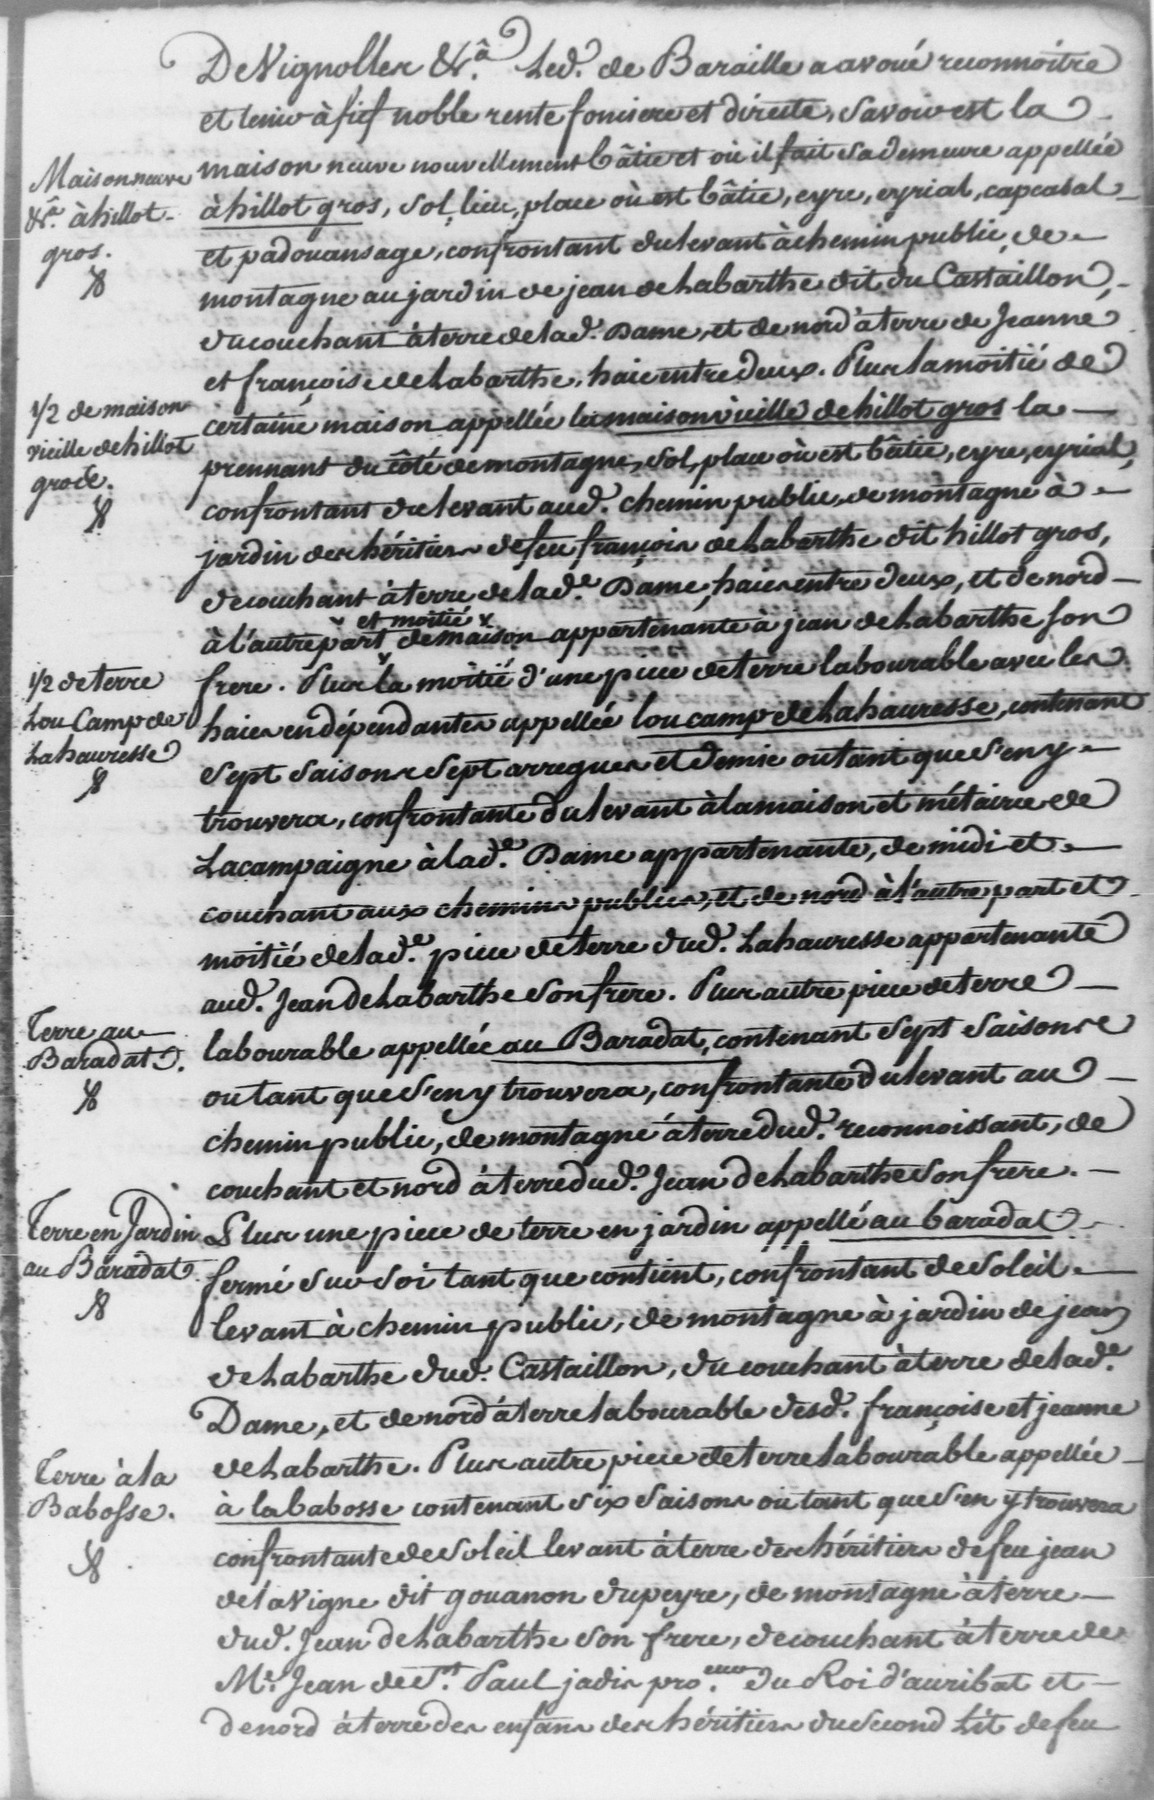 De Vignolles &c.ª Led. de Baraille a avoué reconnoitre
et tenir à fief noble rente fonciere et directe, Savoir est la
Maison neuve
&c.ª à hillot
gros.
maison neuve nouvellement bâtie et où il fait sa demeure appellée
à hillot gros, sol, lieu, place où est bâtie, eyre, eyrial, capcasal
et padouansage, confrontant du levant à chemin public, de
montagne au jardin de jean de Labarthe dit du Castaillon,
du couchant à terre de lad. Dame, et de nord à terre de Jeanne
et françoise de Labarthe, haie entre deux. Plus la moitié de
1/2 de maison
vieille de hillot
gros &c.
certaine maison appellée la maison vieille de hillot gros la
prennant du côté de montagne, sol, place où est bâtie, eyre, eyrial,
confrontant du levant aud. chemin public, de montagne à
jardin des héritiers de feu françois de Labarthe dit hillot gros,
de couchant à terre de lad.e Dame, haies entre deux, et de nord
à l'autre part et moitié de maison appartenante à jean de Labarthe son
1/2 de terre
Lou Camp de
Lahauresse
frere. Plus la moitié d'une piece de terre labourable avec les
haies en dépendantes appellée lou camp de Lahauresse, contenant
sept saisons sept arregues et demie ou tant que s'en y
trouvera, confrontante du levant à la maison et métairie de
Lacampaigne à lad.e Dame appartenante, de midi et
couchant aux chemins publics, et de nord à l'autre part et
moitié de lad.e piece de terre dud. Lahauresse appartenante
aud. Jean de Labarthe son frere. Plus autre piece de terre
Terre au
Baradat.
labourable appellée au Baradat, contenant sept saisons
ou tant que s'en y trouvera, confrontante du levant au
chemin public, de montagne à terre dud. reconnoissant, de
couchant et nord à terre dud. Jean de Labarthe son frere.
Terre en Jardin
au Baradat
Plus une piece de terre en jardin appellé au baradat
fermé sur soi tant que contient, confrontant de soleil
levant à chemin public, de montagne à jardin de jean
de Labarthe dud. Castaillon, du couchant à terre de lad.e
Dame, et de nord à terre labourable desd. françoise et jeanne
de Labarthe. Plus autre piece de terre labourable appellée
Terre à la
Babosse.
à la babosse contenant six saisons ou tant que s'en y trouvera
confrontante de soleil levant à terre des héritiers de feu jean
de Lavigne dit gouanon dupeyre, de montagne à terre
dud. Jean de Labarthe son frere, de couchant à terre de
M.e Jean de S.t Paul jadis pro.eur du Roi d'auribat et
de nord à terre des enfans des héritiers du second Lit de feu